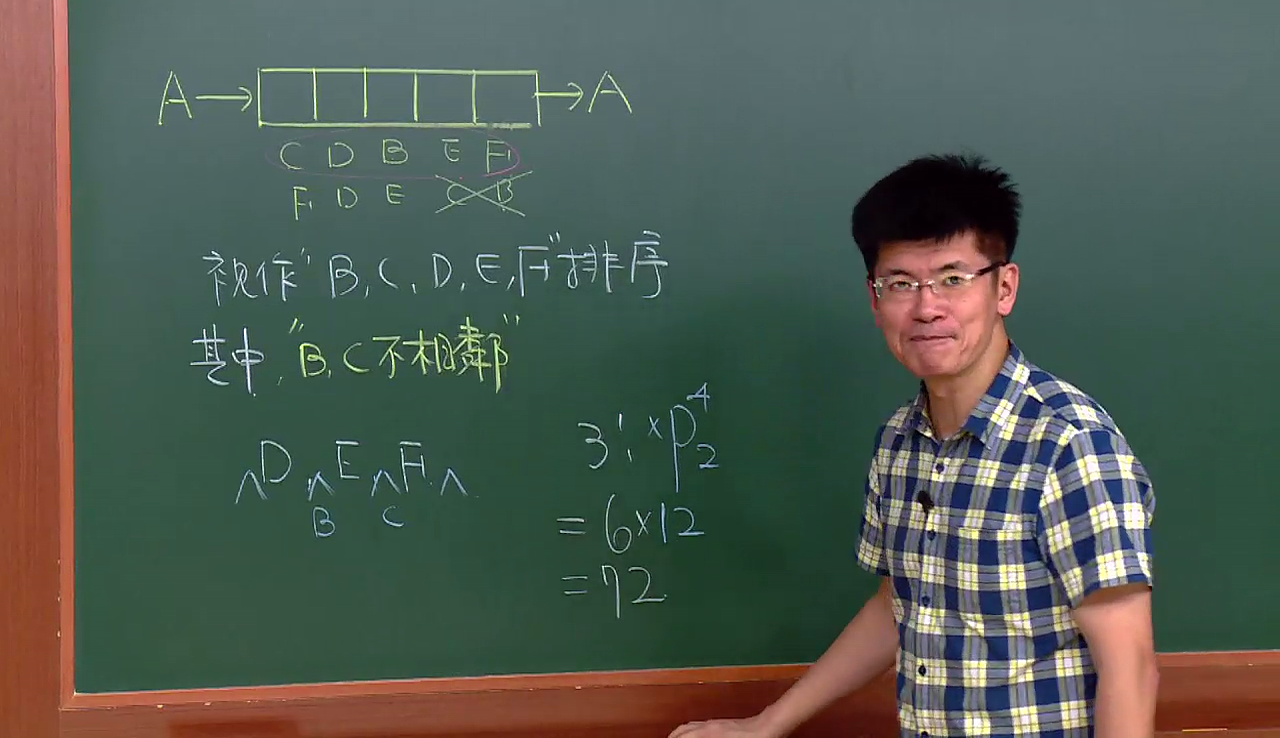 A → → A
C D B E F
F D E C B
視作"B, C, D, E, F"排序
其中, "B, C不相鄰"
∧D∧E∧F∧
B C
3! × P⁴₂
= 6×12
= 72